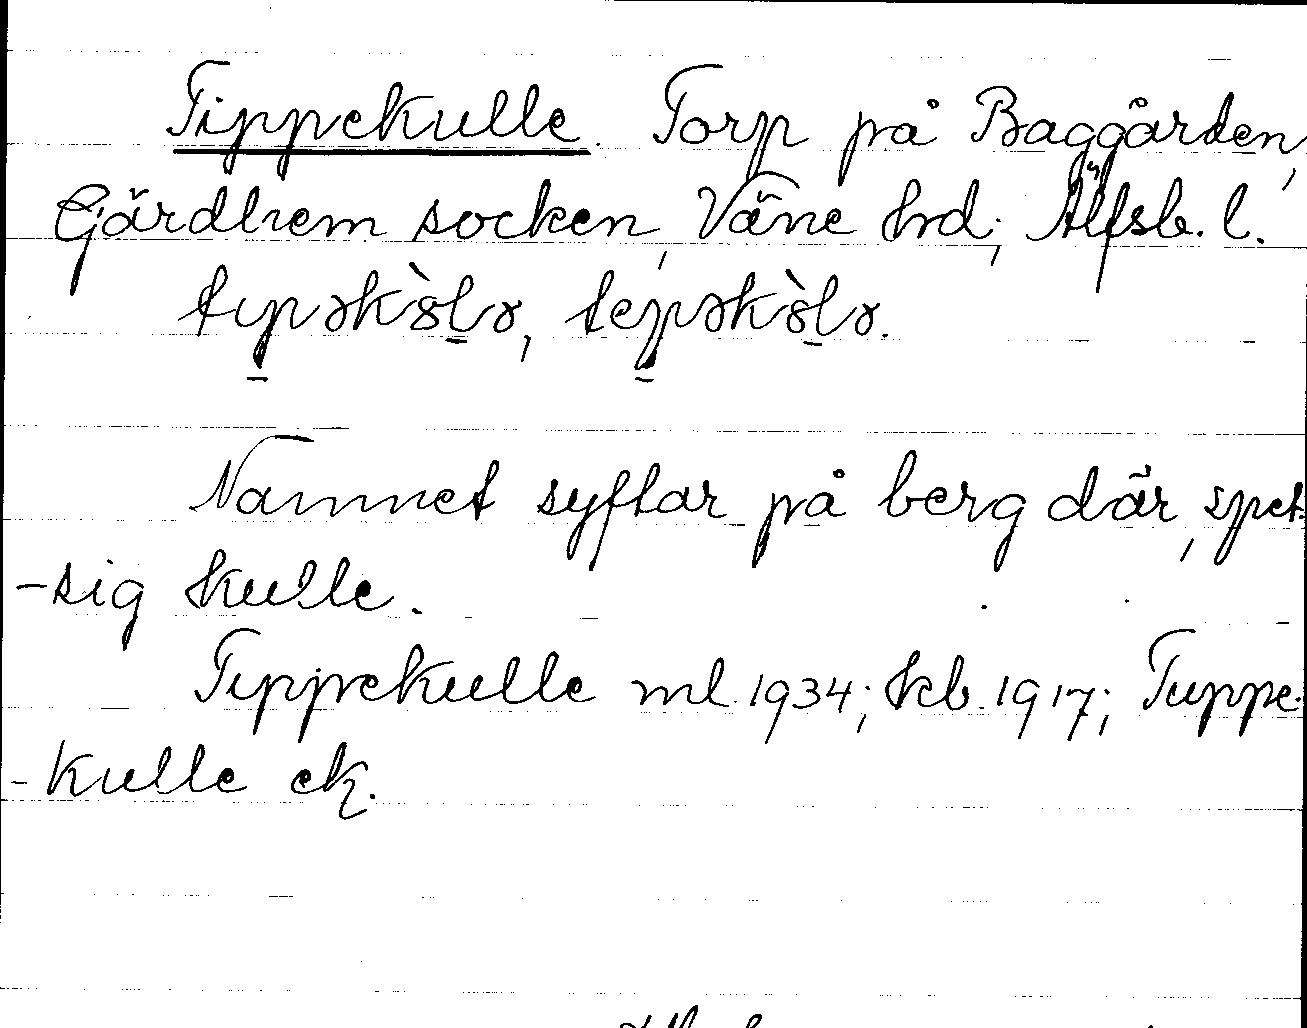 Tippekulle. Torp på Baggården,
Gärdhem socken, Väne hrd; Älfsb. l.
typəkòlə, tepəkòlə.
Namnet syftar på berg där, spet-
-sig kulle.
Tippekulle ml 1934; kb. 1917; Tuppe-
-kulle ek.